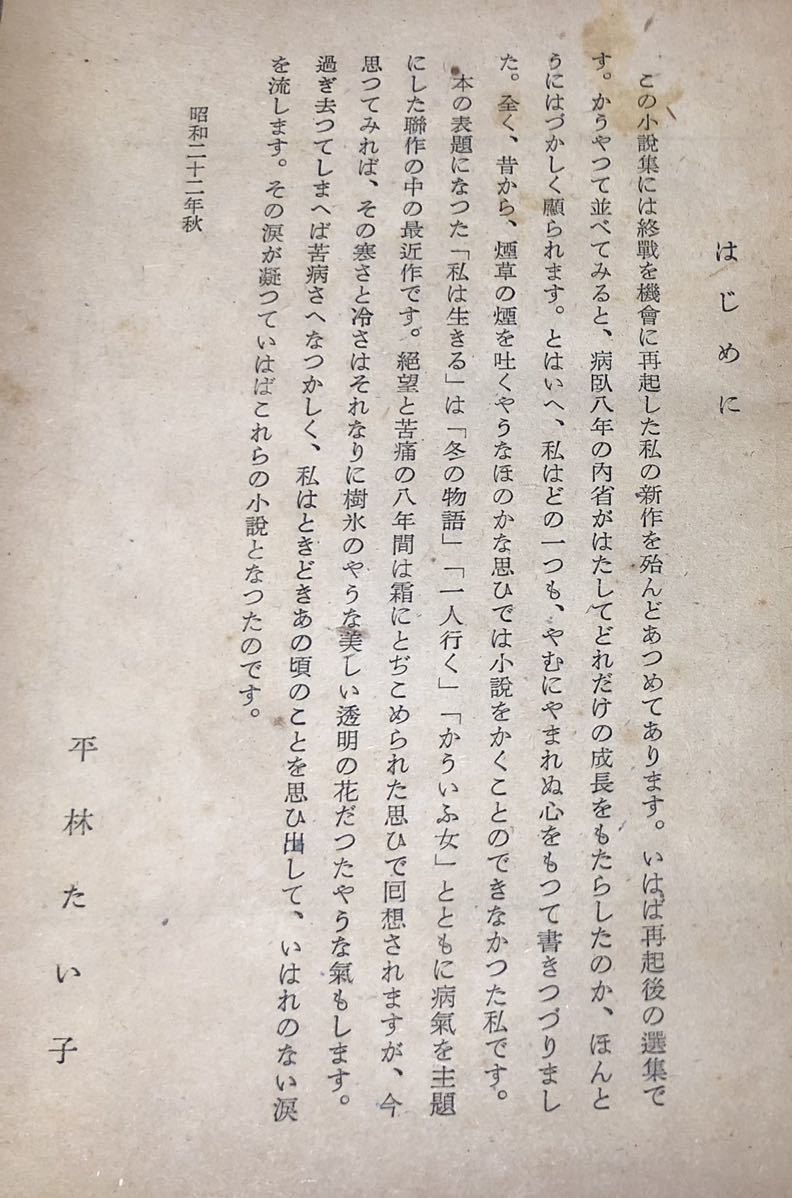 はじめに
この小說集には終戰を機會に再起した私の新作を殆んどあつめてあります。いはば再起後の選集で
す。かうやつて並べてみると、病臥八年の內省がはたしてどれだけの成長をもたらしたのか、ほんと
うにはづかしく顧られます。とはいへ、私はどの一つも、やむにやまれぬ心をもつて書きつづりまし
た。全く、昔から、煙草の煙を吐くやうなほのかな思ひでは小說をかくことのできなかつた私です。
本の表題になつた「私は生きる」は「冬の物語」「一人行く」「かういふ女」とともに病氣を主題
にした聯作の中の最近作です。絕望と苦痛の八年間は霜にとぢこめられた思ひで回想されますが、今
思つてみれば、その寒さと冷さはそれなりに樹氷のやうな美しい透明の花だつたやうな氣もします。
過ぎ去つてしまへば苦病さへなつかしく、私はときどきあの頃のことを思ひ出して、いはれのない淚
を流します。その淚が凝つていはばこれらの小說となつたのです。
昭和二十二年秋
平林たい子